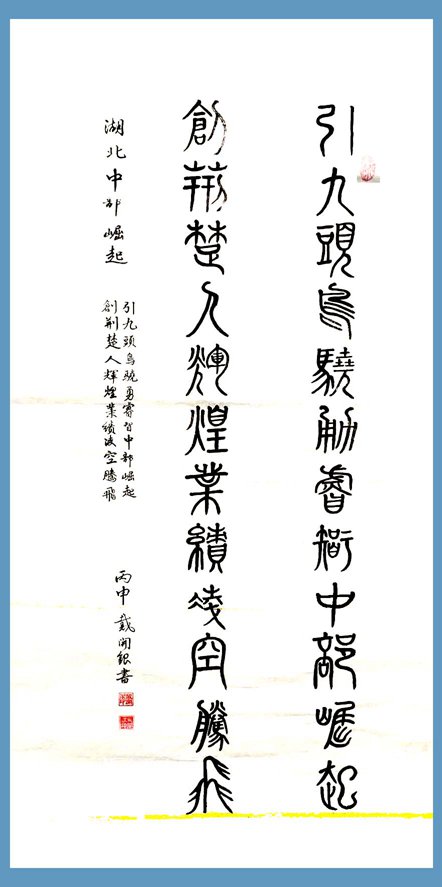 引九頭鳥驍勇睿智中部崛起
創荊楚人煇煌業績凌空騰飛
湖北中部崛起
引九頭鳥驍勇睿智中部崛起
創荆楚人輝煌業績凌空騰飛
丙申 戴開銀書